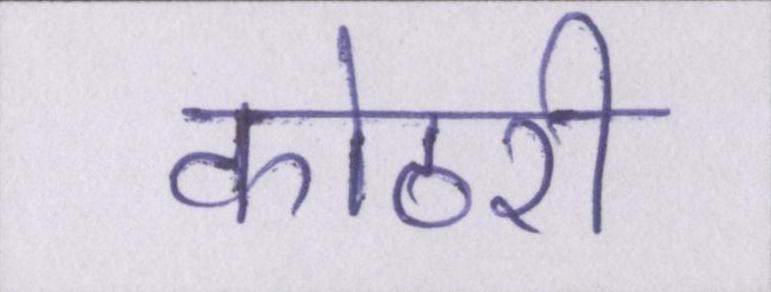 कोठरी